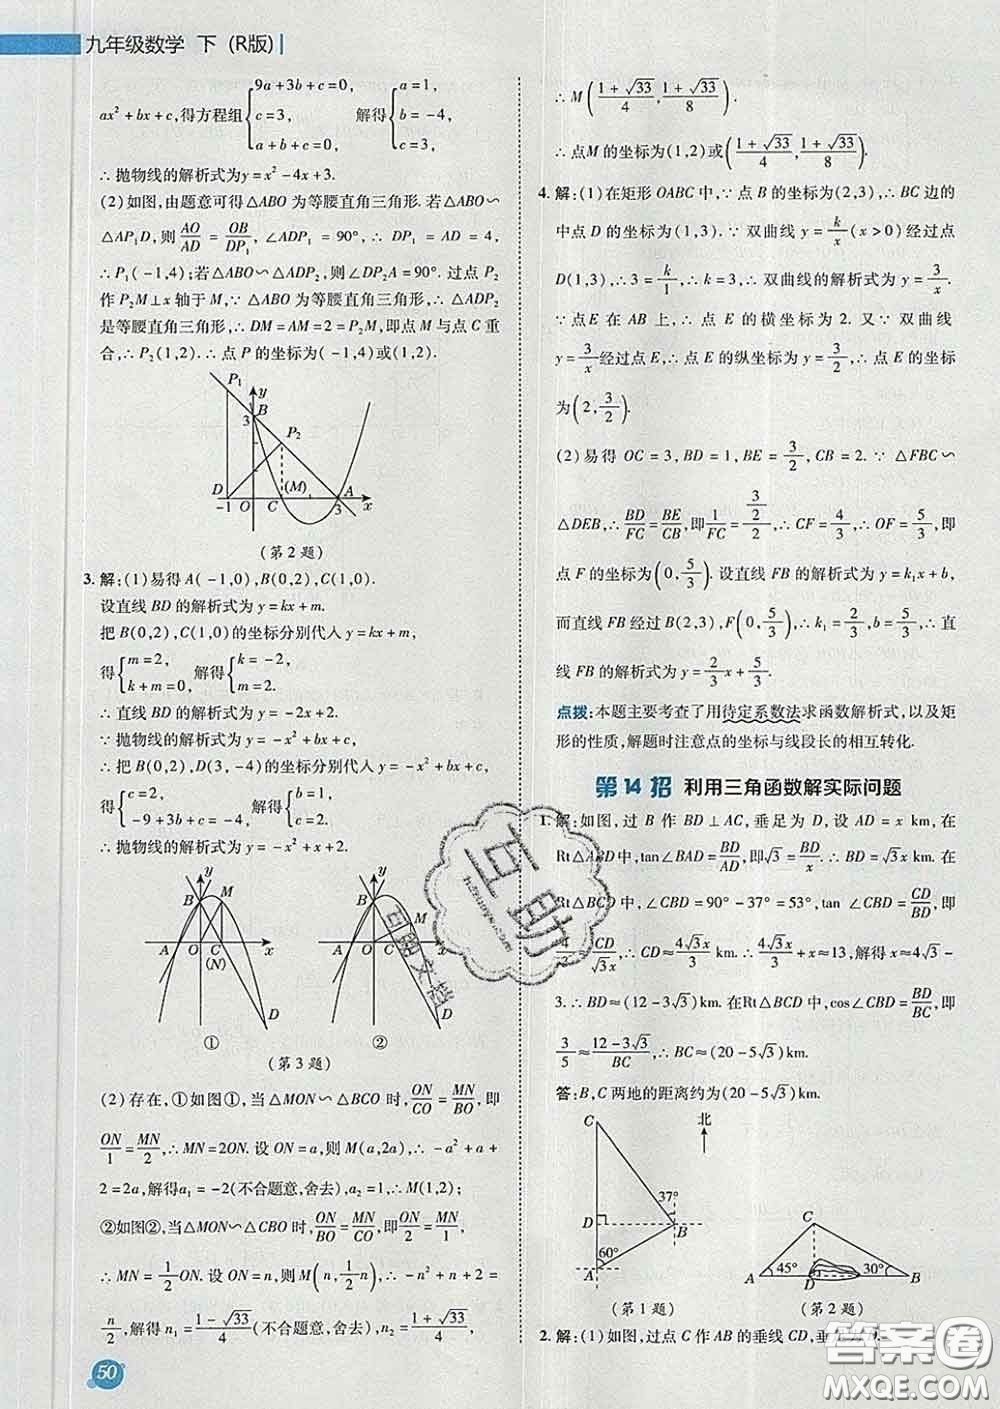 九年级数学 下 (R版)
ax²+bx+c,得方程组{9a+3b+c=0, c=3, a+b+c=0 解得{a=1, b=-4, c=3
∴ 抛物线的解析式为y=x²-4x+3.
(2)如图,由题意可得△ABO 为等腰直角三角形.若△ABO∽
△AP₁D,则AO/AD=OB/DP₁,∠ADP₁=90°,∴ DP₁=AD=4,
∴P₁(-1,4);若△ABO∽△ADP₂,则∠DP₂A=90°.过点 P₂
作 P₂M⊥x 轴于 M,∵ △ABO 为等腰直角三角形,∴△ADP₂
是等腰直角三角形,∴ DM=AM=2=P₂M,即点 M 与点 C 重
合,∴ P₂(1,2).∴ 点 P 的坐标为(-1,4)或(1,2).
P₁ y B 3 P₂ D (M) A -1 O C 3 x
(第 2 题)
3. 解:(1)易得 A(-1,0),B(0,2),C(1,0).
设直线 BD 的解析式为 y=kx+m.
把 B(0,2),C(1,0)的坐标分别代入 y=kx+m,
得{m=2, k+m=0, 解得{k=-2, m=2.
∴ 直线 BD 的解析式为 y=-2x+2.
∵ 抛物线的解析式为 y=-x²+bx+c,
∴ 把 B(0,2),D(3,-4)的坐标分别代入 y=-x²+bx+c,
得{c=2, -9+3b+c=-4, 解得{b=1, c=2.
∴ 抛物线的解析式为 y=-x²+x+2.
y B M A O C (N) x D ①
y B M A O C N x D ②
(第 3 题)
(2)存在,①如图①,当△MON∽△BCO 时,ON/CO=MN/BO,即
ON/1=MN/2,∴MN=2ON.设 ON=a,则 M(a,2a),∴ -a²+a+
2=2a,解得a₁=-2(不合题意,舍去),a₂=1,∴M(1,2);
②如图②,当△MON∽△CBO 时,ON/BO=MN/CO,即ON/2=MN/1,
∴ MN=1/2 ON.设 ON=n,则 M(n,1/2 n),∴ -n²+n+2=
n/2,解得 n₁=(1-√33)/4(不合题意,舍去),n₂=(1+√33)/4,
50
∴ M((1+√33)/4,(1+√33)/8).
∴ 点M 的坐标为(1,2)或((1+√33)/4,(1+√33)/8).
4. 解:(1)在矩形 OABC 中,∵ 点 B 的坐标为(2,3),∴ BC 边的
中点 D 的坐标为(1,3).∵ 双曲线 y=k/x(x>0)经过点
D(1,3),∴3=k/1,∴ k=3,∴ 双曲线的解析式为 y=3/x.
∵ 点E 在 AB 上,∴ 点 E 的横坐标为 2.又∵ 双曲线
y=3/x经过点 E,∴点 E 的纵坐标为3/2,∴ 点 E 的坐标
为(2,3/2).
(2)易得 OC=3,BD=1,BE=3/2,CB=2.∵ △FBC∽
△DEB,∴BD/FC=BE/CB,即1/FC=(3/2)/2,∴ CF=4/3,∴ OF=5/3,即
点 F 的坐标为(0,5/3).设直线 FB 的解析式为 y=k₁x+b,
而直线 FB 经过 B(2,3),F(0,5/3),∴ k₁=2/3,b=5/3,∴ 直
线 FB 的解析式为 y=2/3 x+5/3.
点拨:本题主要考查了用待定系数法求函数解析式,以及矩
形的性质,解题时注意点的坐标与线段长的相互转化.
第 14 招 利用三角函数解实际问题
1. 解:如图,过 B 作 BD⊥AC,垂足为 D,设 AD=x km,在
Rt△ABD中,tan∠BAD=BD/AD,即√3=BD/x.∴ BD=√3x km.在
Rt△BCD 中,∠CBD=90°-37°=53°,tan ∠CBD=CD/BD,即
CD/√3x,∴ CD≈4√3x/3.∴ x+4√3x/3≈13,解得 x≈4√3-
3.∴ BD≈(12-3√3)km.在Rt△BCD 中,cos∠CBD=BD/BC,即
3/5≈(12-3√3)/BC,∴ BC≈(20-5√3)km.
答:B,C 两地的距离约为(20-5√3)km.
C 北 37° D B 60° A
(第 1 题)
C A 45° D 30° B
(第 2 题)
2. 解:(1)如图,过点 C 作 AB 的垂线 CD,
互助文档
答案圈
MXQE.COM